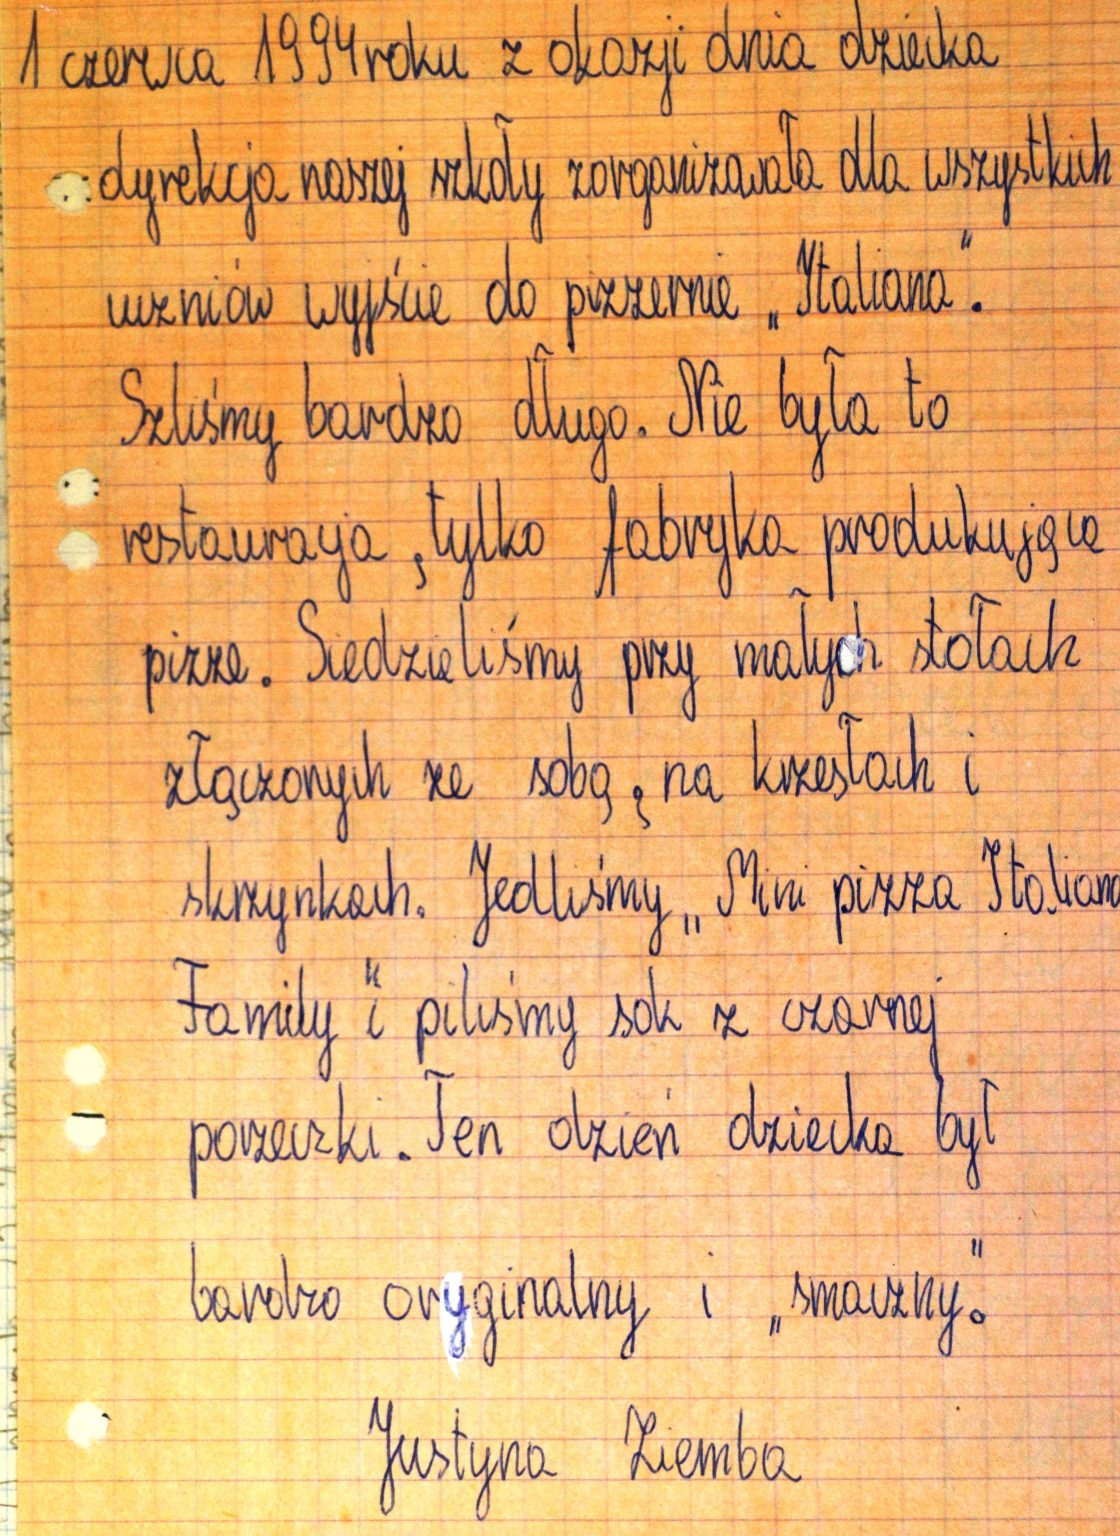 1 czerwca 1994 roku z okazji dnia dziecka
dyrekcja naszej szkoły zorganizowała dla wszystkich
uczniów wyjście do pizzernie „Italiana”.
Szliśmy bardzo długo. Nie była to
restauracja, tylko fabryka produkująca
pizze. Siedzieliśmy przy małych stołach
złączonych ze sobą, na krzesłach i
skrzynkach. Jedliśmy „Mini pizza Italiana
Family” i piliśmy sok z czarnej
porzeczki. Ten dzień dziecka był
bardzo oryginalny i „smaczny”.
Justyna Ziemba